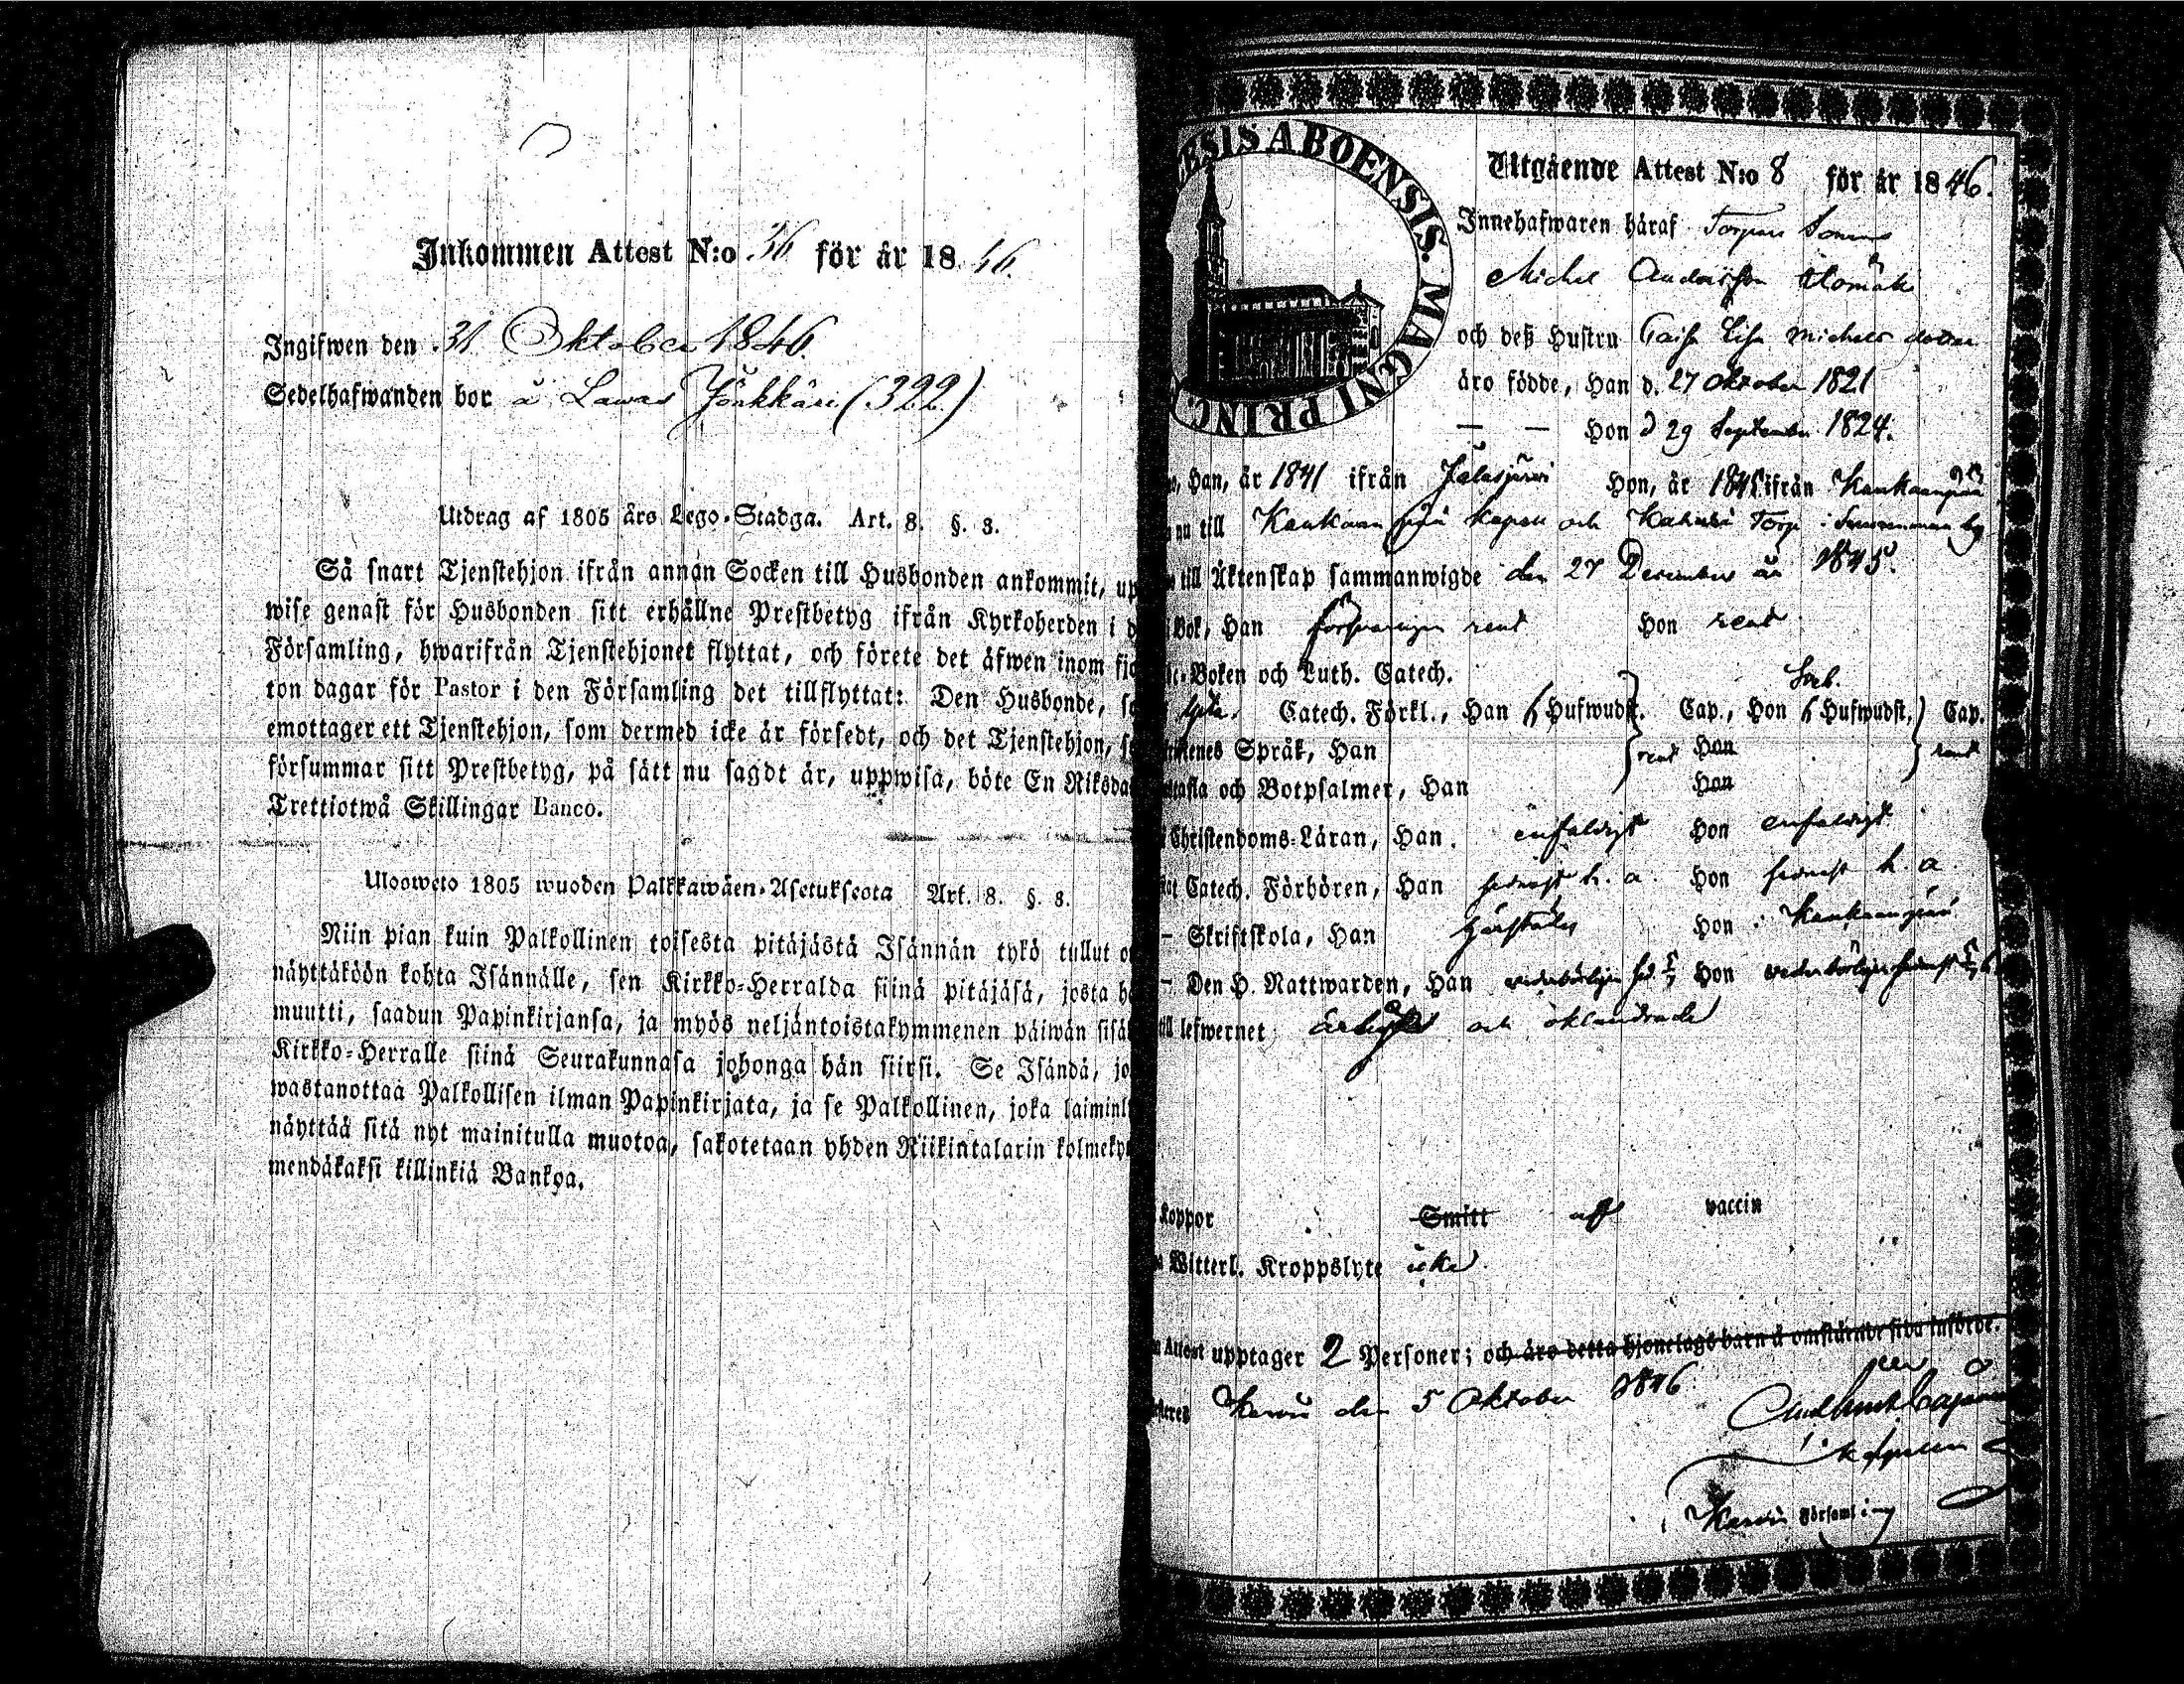 Inkommen Attest N:o 36 för år 1846.
Ingifwen den 31 Oktober 1846.
Sedelhafwanden bor å Lawas Jönkkäri (322)
Utdrag af 1805 års Lego-Stadga. Art. 8. §. 3.
Så snart Tjenstehjon ifrån annan Socken till Husbonden ankommit, up
wise genast för Husbonden sitt erhållne Prestbetyg ifrån Kyrkoherden i d
Församling, hwarifrån Tjenstehjonet flyttat, och förete det äfwen inom fjo
ton dagar för Pastor i den Församling det tillflyttat: Den Husbonde, s
emottager ett Tjenstehjon, som dermed icke är försedt, och det Tjenstehjon, s
försummar sitt Prestbetyg, på sätt nu sagdt är, uppwisa, böte En Riksda
Trettiotwå Skillingar Banco.
Uloosweto 1805 wuoden Palkkawäen-Asetuksesta Art. 8. §. 3.
Niin pian kuin Palkollinen toisesta pitäjästä Isännän tykö tullut o
näyttäköön kohta Isännälle, sen Kirkko-Herralda siinä pitäjäsä, josta h
muutti, saadun Papinkirjansa, ja myös neljäntoistakymmenen päiwän sisä
Kirkko-Herralle siinä Seurakunnasa johonga hän siirsi. Se Isändä, jo
wastanottaa Palkollisen ilman Papinkirjata, ja se Palkollinen, joka laiminl
näyttää sitä nyt mainitulla muotoa, sakotetaan yhden Riikintalarin kolmeky
mendäkaksi killinkiä Bankoa.
ESIS ABOENSIS. MAGNI PRINC.
Utgående Attest N:o 8 för år 1846.
Innehafwaren häraf Torpare Sonen
Michel Andersson
och deß Hustru Caisa Lisa Michels dotter
äro födde, Han d. 27 Oktober 1821
— — Hon d 29 September 1824.
Han, år 1841 ifrån Jalasjärvi Hon, år 1845 ifrån Kankaanpää
nu till Kankaanpää Kapell och Torp i
till Äktenskap sammanwigde den 27 December år 1845.
Bok, Han försvarligen rent Hon rent
Boken och Luth. Catech.
Catech. Förkl., Han 6 Hufwudst. Cap., Hon 6 Hufwudst. Cap.
Språk, Han rent Hon rent
och Botpsalmer, Han Hon
Christendoms-Läran, Han enfaldigt Hon enfaldigt
Catech. Förhören, Han h. a. Hon h. a.
– Skriftskola, Han Hon i Kankaanpää
– Den H. Nattwarden, Han Hon
till lefwernet och oklandrade
Koppor Smitt af vaccin
Witterl. Kroppslyte icke
Attest upptager 2 Personer; och äro detta hjonelags barn å omstående sida införde.
den 5 Oktober 1846
Församling